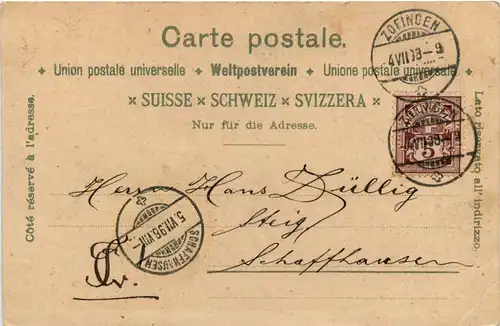 Carte postale.
✦ Union postale universelle ✦ Weltpostverein ✦ Unione postale universale ✦
× SUISSE × SCHWEIZ × SVIZZERA ×
Nur für die Adresse.
Côté réservé à l'adresse.
Lato riservato all'indirizzo.
ZOFINGEN
4 VII 98 – 9
ZOFINGEN
4 VII 98 – 9
5
Herrn Hans Düllig
Steig
Schaffhausen
SCHAFFHAUSEN
5. VII 98. VIII